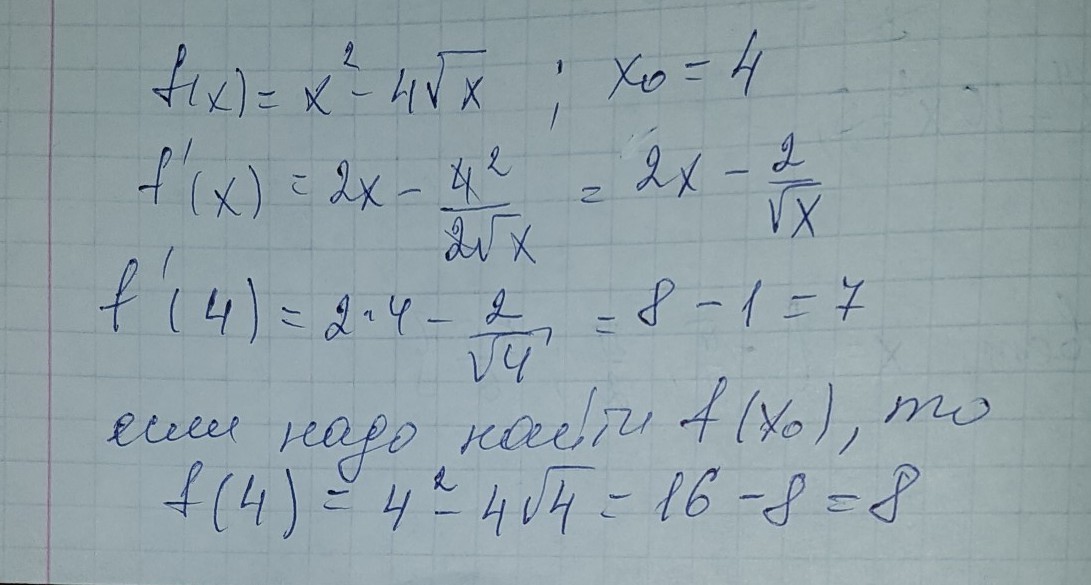 f(x) = x² - 4√x ; x₀ = 4
f'(x) = 2x - 4²/2√x = 2x - 2/√x
f'(4) = 2·4 - 2/√4 = 8 - 1 = 7
если надо найти f(x₀), то
f(4) = 4² - 4√4 = 16 - 8 = 8